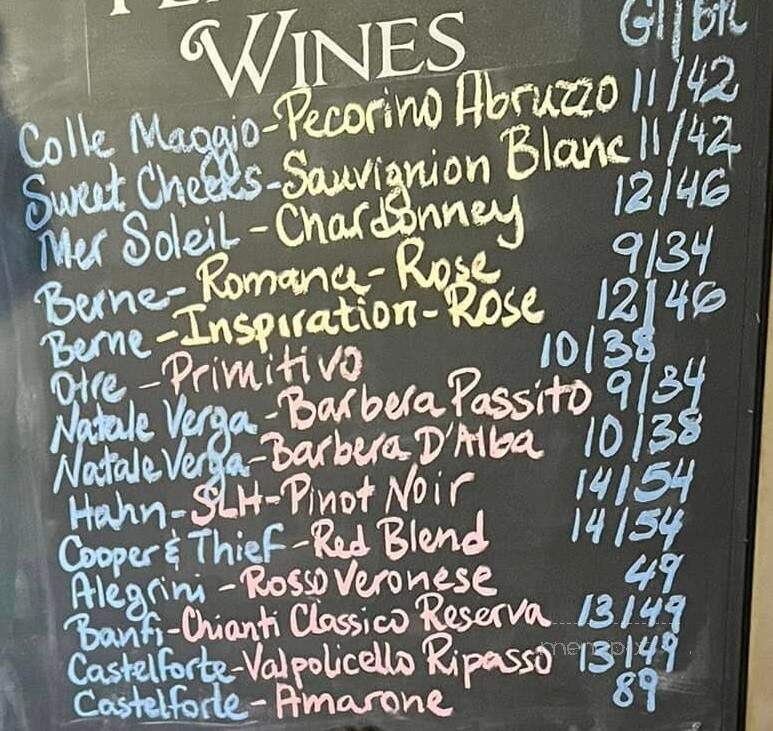 WINES Gl/Btl
Colle Maggio-Pecorino Abruzzo 11/42
Sweet Cheeks-Sauvignion Blanc 11/42
Mer Soleil-Chardonney 12/46
Berne-Romance-Rose 9/34
Berne-Inspiration-Rose 12/46
Otre-Primitivo 10/38
Natale Verga-Barbera Passito 9/34
Natale Verga-Barbera D'Alba 10/38
Hahn-SLH-Pinot Noir 14/54
Cooper & Thief-Red Blend 14/54
Alegrini-Rosso Veronese 49
Banfi-Chianti Classico Reserva 13/49
Castelforte-Valpolicello Ripasso 13/49
Castelforte-Amarone 89